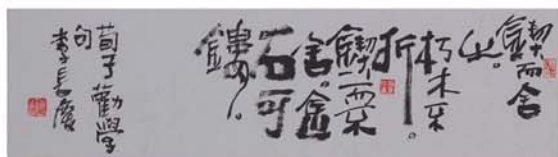 鍥而舍
之。
朽木不
折。
鍥而不
舍。金
石可
鏤。
荀子勸學
句